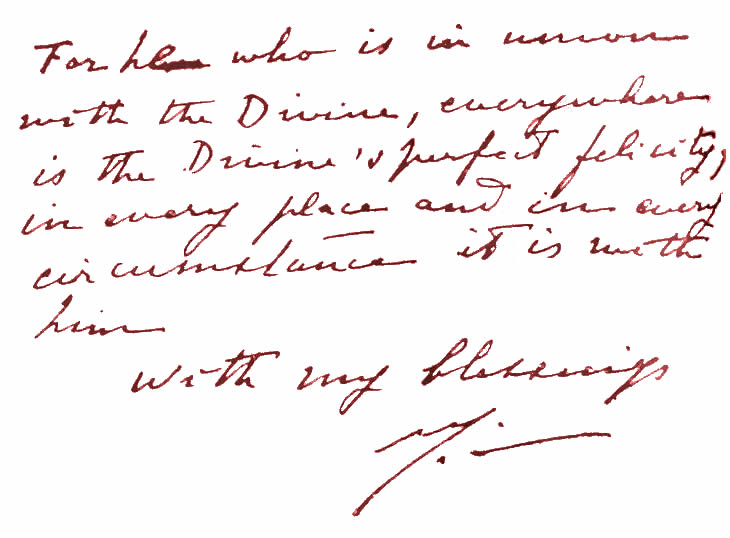 For he who is in union
with the Divine, everywhere
is the Divine's perfect felicity,
in every place and in every
circumstance it is with
him
with my blessings